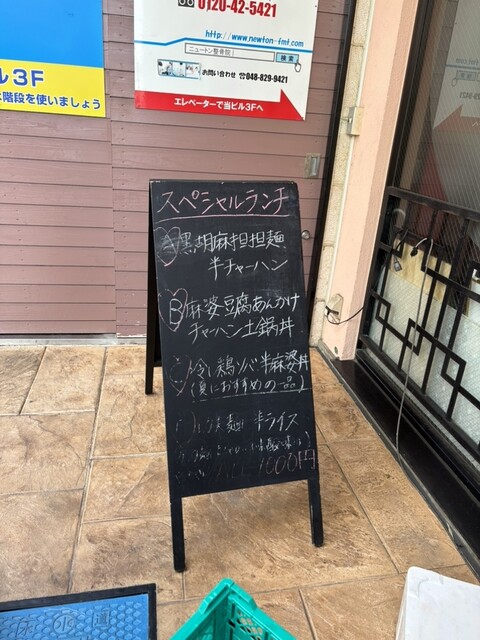 0120-42-5421
http://www.newton-fmt.com
ニュートン整骨院
検索
お問い合わせ ☎048-829-9421
エレベーターで当ビル3Fへ
ル3F
階段を使いましょう
スペシャルランチ
A 黒胡麻担担麺
半チャーハン
B 麻婆豆腐あんかけ
チャーハン土鍋丼
C 冷し鶏ソバ半麻婆丼
(夏におすすめの一品)
麺 半ライス
1000円